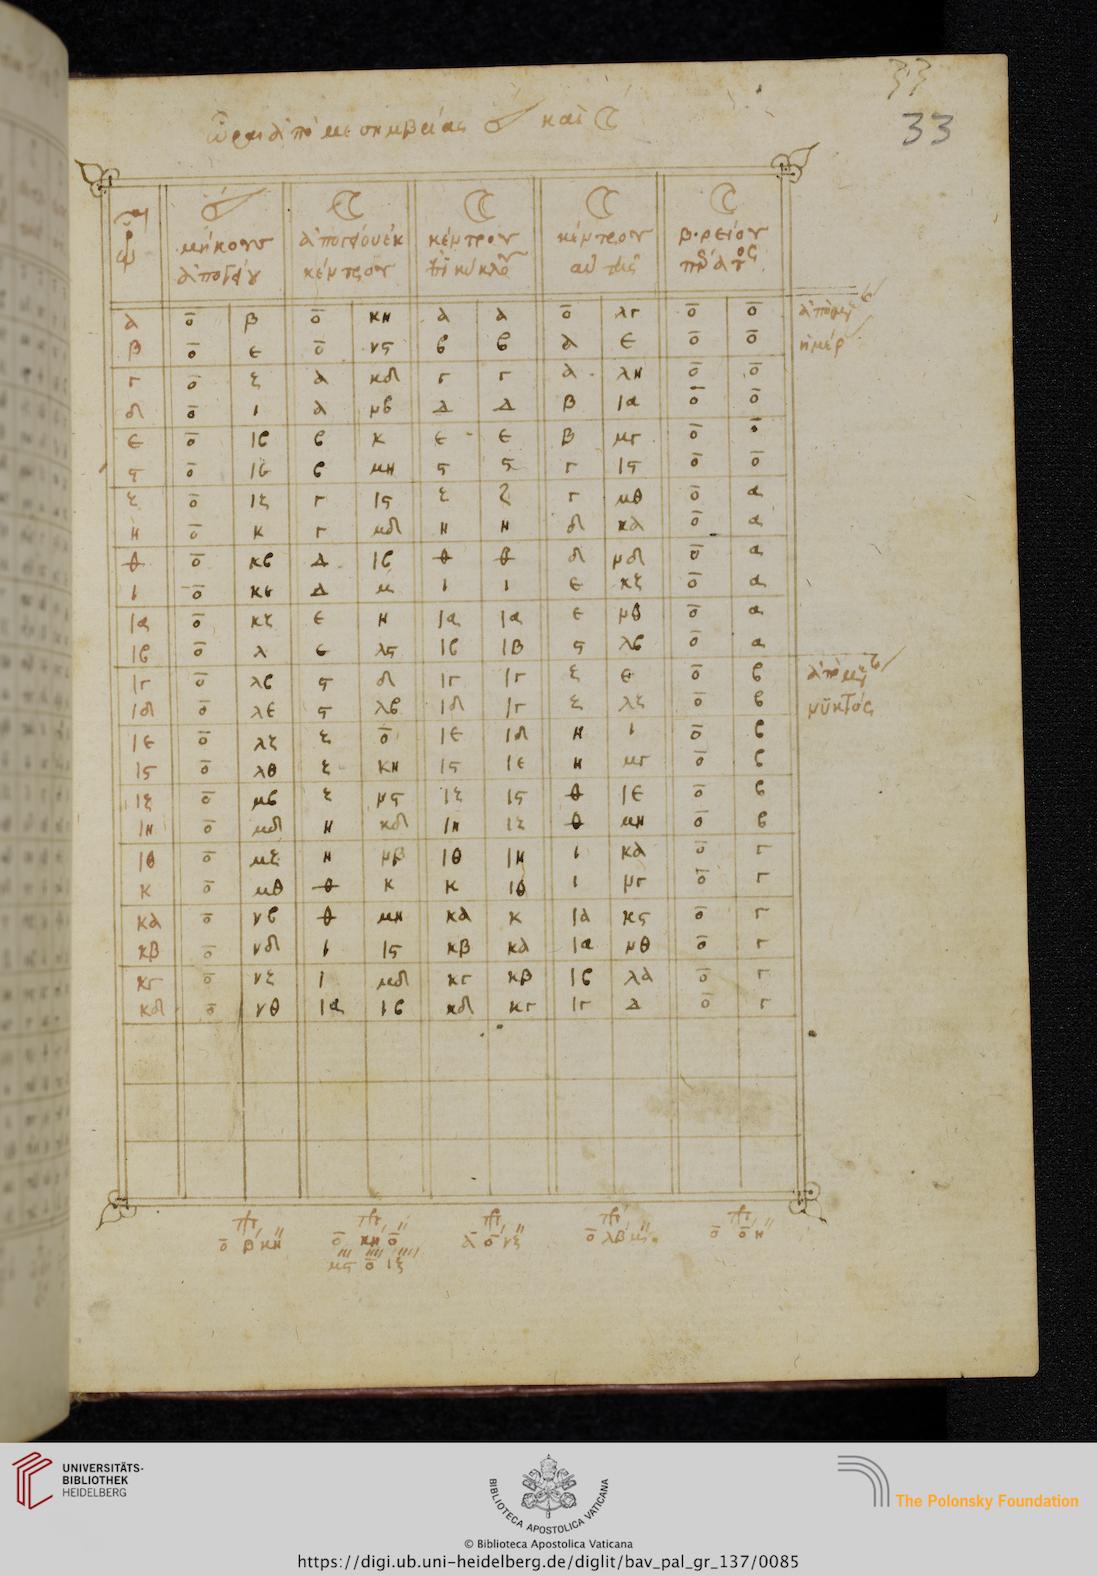 33
ὧραι ἀπὸ μεσημβρίας ☉ καὶ ☾
μήκους ἀπογείου
ἀπογείου ἐκκέντρου
κέντρου ἐπικύκλου
κέντρου αὐτῆς
βορείου πέρατος
α ο β ο κη α α ο λγ ο ο
β ο ε ο νϛ β β α ε ο ο
γ ο ζ α κδ γ γ α λη ο ο
δ ο ι α μβ δ δ β ια ο ο
ε ο ιβ β κ ε ε β μγ ο ο
ϛ ο ιε β μη ϛ ϛ γ ιϛ ο ο
ζ ο ιζ γ ιϛ ζ ζ γ μθ ο α
η ο κ γ μδ η η δ κα ο α
θ ο κβ δ ιβ θ θ δ μδ ο α
ι ο κε δ μ ι ι ε κζ ο α
ια ο κζ ε η ια ια ε μθ ο α
ιβ ο λ ε λϛ ιβ ιβ ϛ λβ ο α
ιγ ο λβ ϛ δ ιγ ιγ ζ ε ο β
ιδ ο λε ϛ λβ ιδ ιγ ζ λζ ο β
ιε ο λζ ζ ο ιε ιδ η ι ο β
ιϛ ο λθ ζ κη ιϛ ιε η μγ ο β
ιζ ο μβ ζ μϛ ιζ ιϛ θ ιε ο β
ιη ο μδ η κδ ιη ιζ θ μη ο β
ιθ ο μζ η μβ ιθ ιη ι κα ο γ
κ ο μθ θ κ κ ιθ ι μγ ο γ
κα ο νβ θ μη κα κ ια κϛ ο γ
κβ ο νδ ι ιϛ κβ κα ια μθ ο γ
κγ ο νζ ι μδ κγ κβ ιβ λα ο γ
κδ ο νθ ια ιβ κδ κγ ιγ δ ο γ
νυκτός
ο β κη
ο κη ο
μϛ ο ιζ
α ο νζ
ο ο η
UNIVERSITÄTS-
BIBLIOTHEK
HEIDELBERG
BIBLIOTECA APOSTOLICA VATICANA
The Polonsky Foundation
© Biblioteca Apostolica Vaticana
https://digi.ub.uni-heidelberg.de/diglit/bav_pal_gr_137/0085